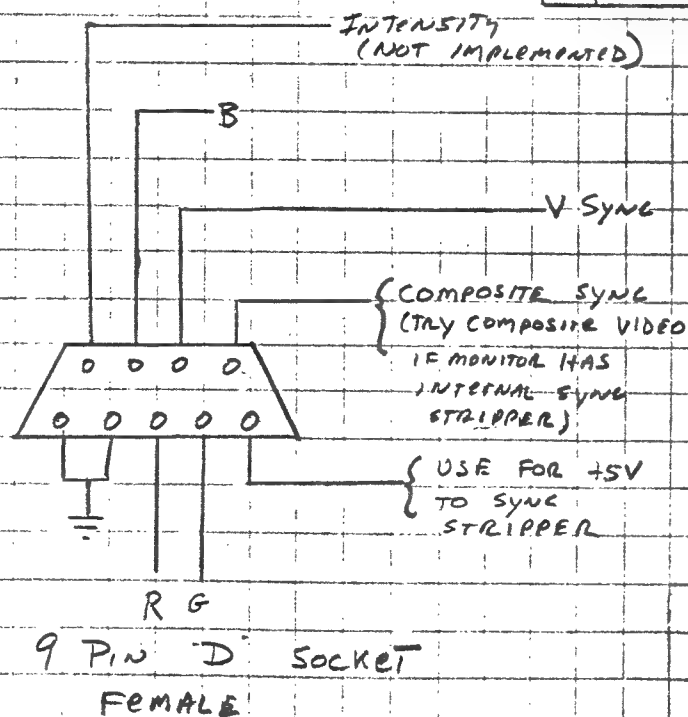 INTENSITY
(NOT IMPLEMENTED)
B
V SYNC
COMPOSITE SYNC
(TRY COMPOSITE VIDEO
IF MONITOR HAS
INTERNAL SYNC
STRIPPER)
USE FOR +5V
TO SYNC
STRIPPER
R G
9 PIN "D" SOCKET
FEMALE